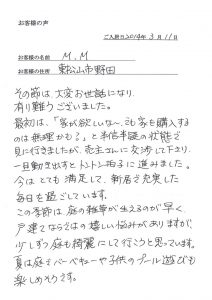 お客様の声
ご入居日2014年3月11日
お客様の名前 M.M
お客様の住所 東松山市野田
その節は、大変お世話になり、
有り難うございました。
最初は、「家が欲しいな〜、でも家を購入する
のは無理かも?」と半信半疑の状態で
見に行きましたが、売主さんに交渉して下さり、
一旦動き出すとトントン拍子に進みました。
今はとても満足して、新居で充実した
毎日を過ごしています。
この季節は、庭の雑草が生えるのが早く、
戸建てならではの嬉しい悩みがありますが、
少しずつ庭も綺麗にして行こうと思っています。
夏は庭でバーベキューや子供のプール遊びも
楽しめそうです。